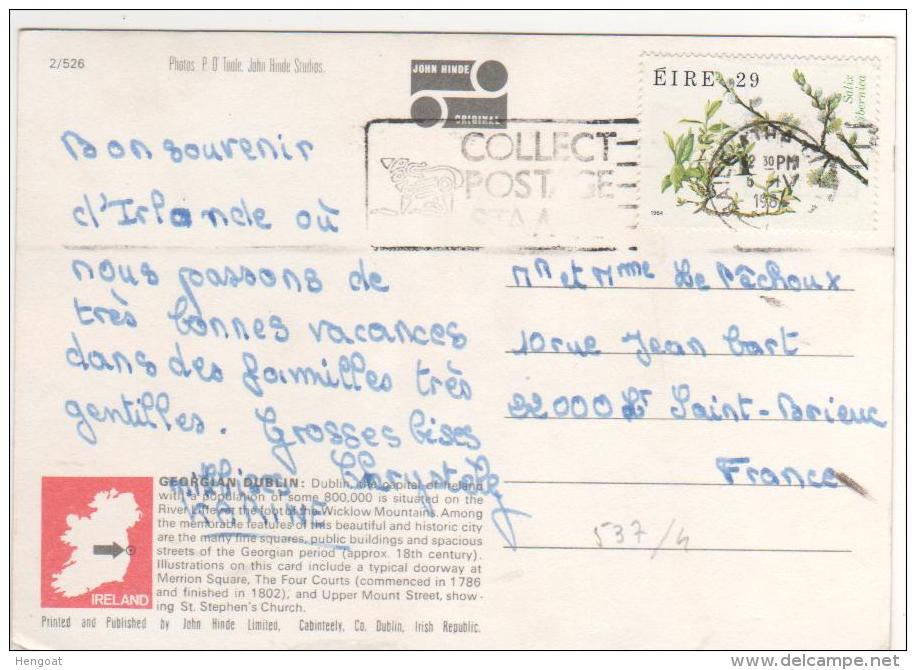 2/526
Photos: P. O'Toole, John Hinde Studios.
JOHN HINDE
ORIGINAL
COLLECT
POSTAGE
ÉIRE 29
Salix
hibernica
30 PM
1984
Bon souvenir
d'Irlande où
nous passons de
très bonnes vacances
dans des familles très
gentilles. Grosses bises
Mr et Mme Le Péchoux
10 rue Jean Bart
22000 St Saint-Brieuc
France
537/4
GEORGIAN DUBLIN: Dublin, the capital of Ireland
with a population of some 800,000 is situated on the
River Liffey at the foot of the Wicklow Mountains. Among
the memorable features of this beautiful and historic city
are the many fine squares, public buildings and spacious
streets of the Georgian period (approx. 18th century).
Illustrations on this card include a typical doorway at
Merrion Square, The Four Courts (commenced in 1786
and finished in 1802), and Upper Mount Street, show-
ing St. Stephen's Church.
IRELAND
Printed and Published by John Hinde Limited, Cabinteely, Co. Dublin, Irish Republic.
Hengoat
www.delcampe.net